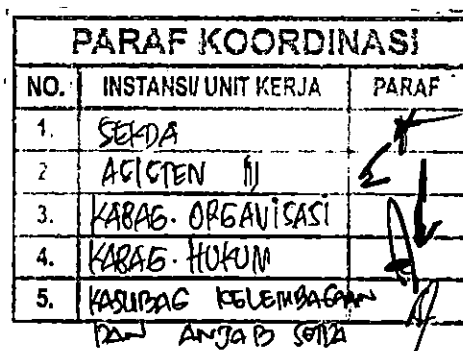 PARAF KOORDINASI
NO. INSTANSI/ UNIT KERJA PARAF
1. SEKDA
2 ASISTEN III
3. KABAG. ORGANISASI
4. KABAG. HUKUM
5. KASUBAG KELEMBAGAAN
DAN ANJAB SETDA